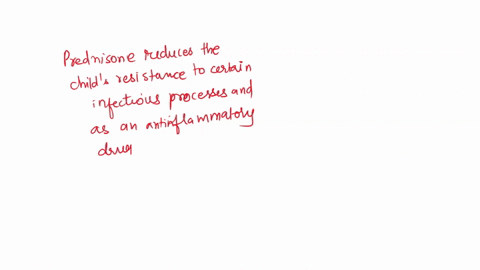 Prednisone reduces the
child's resistance to certain
infectious processes and
as an antiinflammatory
drug